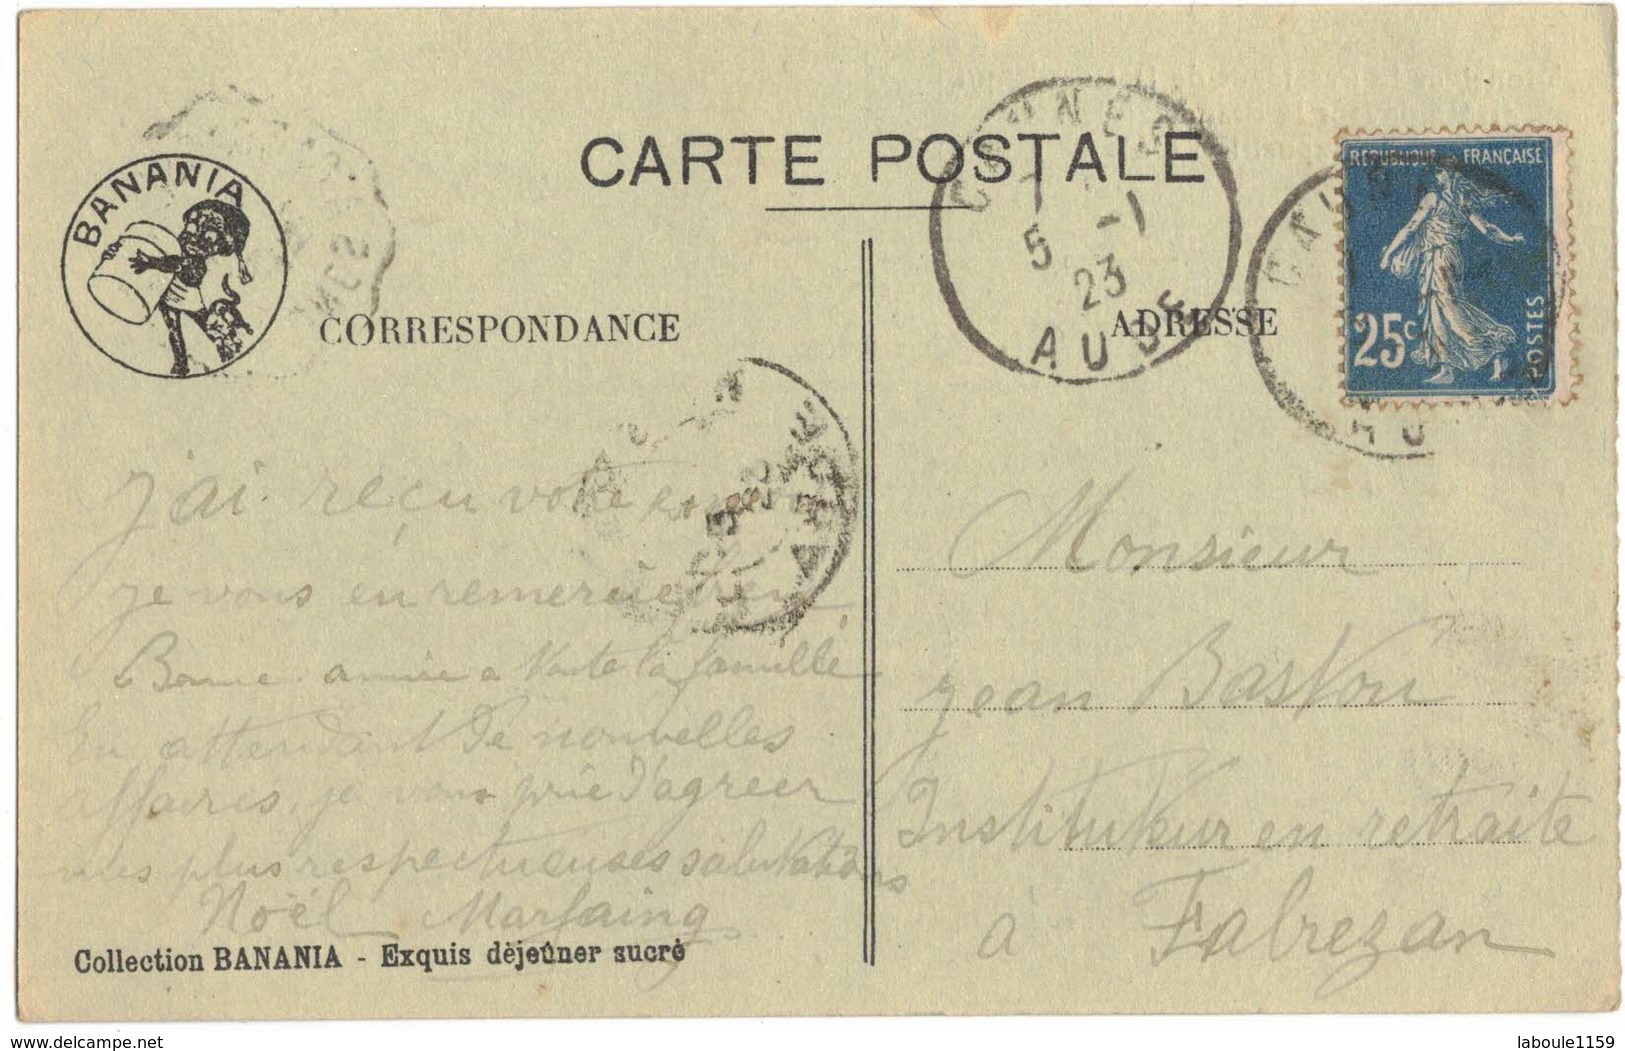 CARTE POSTALE
BANANIA
CORRESPONDANCE
ADRESSE
CAUNES
5 -1
23
AUDE
REPUBLIQUE FRANÇAISE
25c
POSTES
CAUNES
j'ai reçu votre
je vous en remercie bien
Bonne année a toute la famille
En attendant de nouvelles
affaires, je vous prie d'agreer
mes plus respectueuses salutations
Noël Marfaing
Collection BANANIA - Exquis déjeûner sucré
Monsieur
Jean
Instituteur en retraite
à Fabrezan
delcampe.net
laboule1159